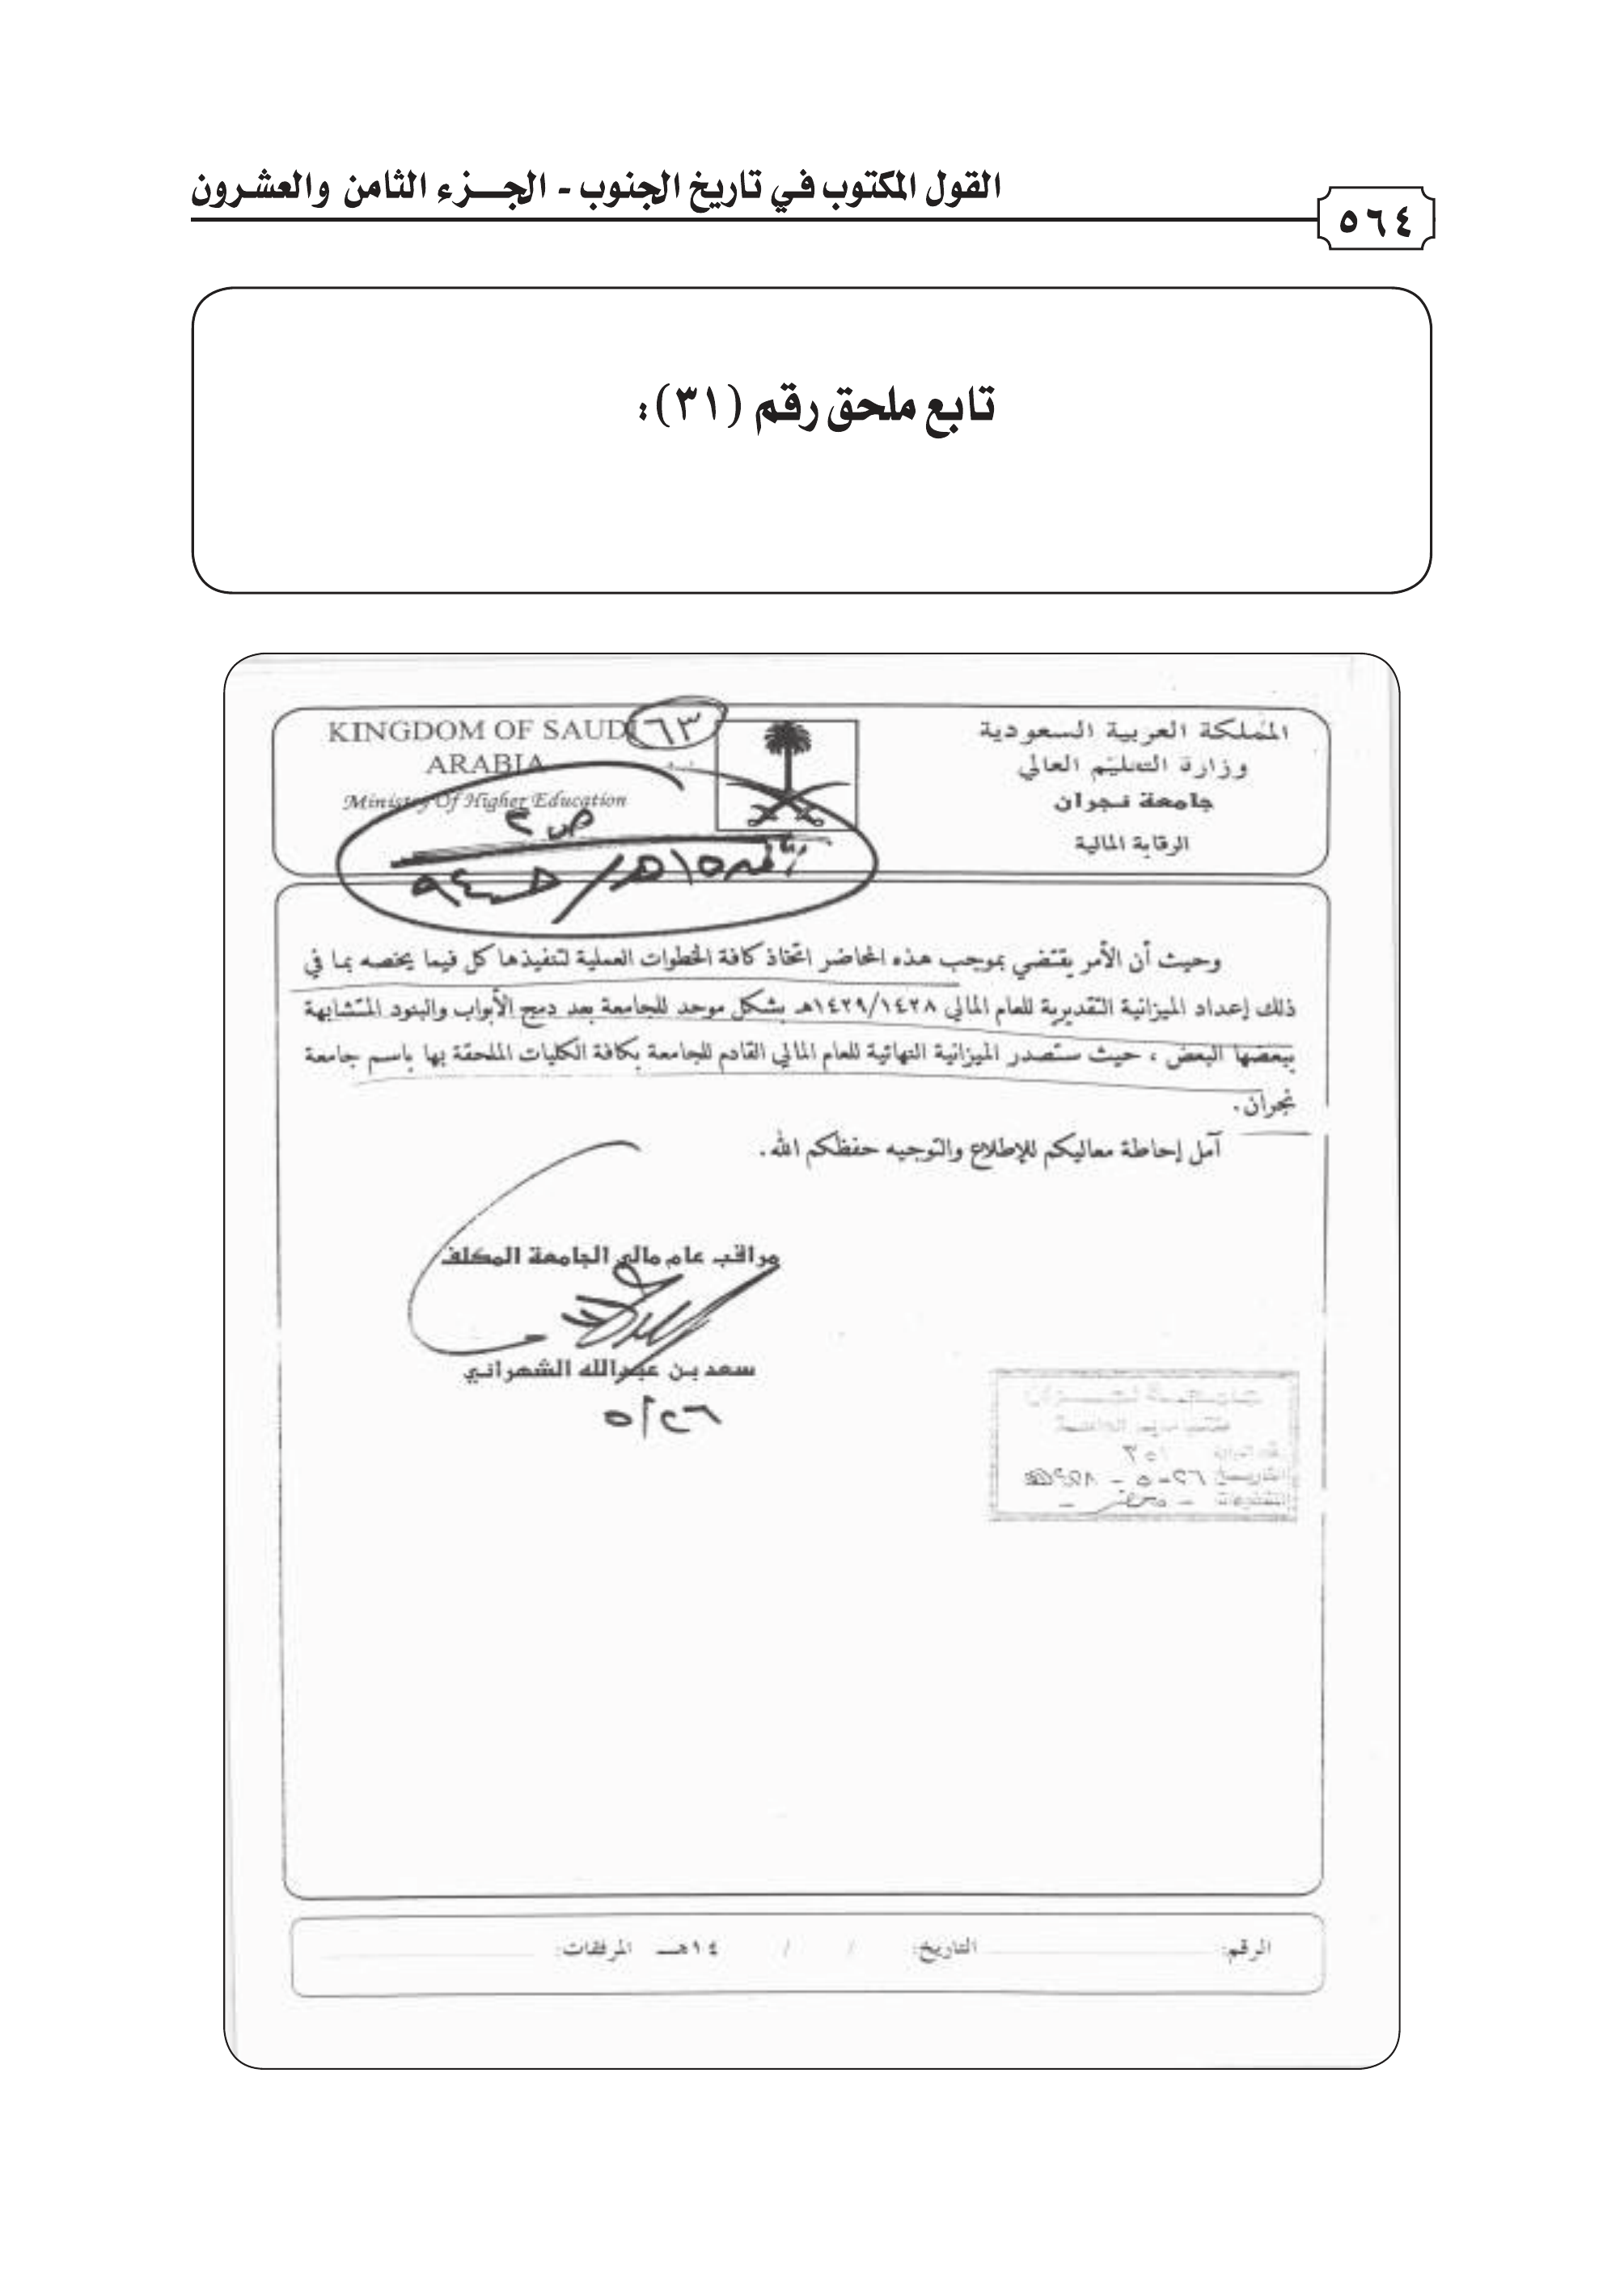 القول المكتوب في تاريخ الجنوب - الجـــزء الثامن والعشـرون
٥٦٤
تابع ملحق رقم (٣١):
KINGDOM OF SAUDI
ARABIA
Ministry Of Higher Education
٦٣
المملكة العربية السعودية
وزارة التعليم العالي
جامعة نجران
الرقابة المالية
ص ٢
وحيث أن الأمر يقتضي بموجب هذه المحاضر اتخاذ كافة الخطوات العملية لتنفيذها كل فيما يخصه بما في
ذلك إعداد الميزانية التقديرية للعام المالي ١٤٢٩/١٤٢٨هـ بشكل موحد للجامعة بعد دمج الأبواب والبنود المتشابهة
ببعضها البعض ، حيث ستصدر الميزانية النهائية للعام المالي القادم للجامعة بكافة الكليات الملحقة بها باسم جامعة
نجران.
آمل إحاطة معاليكم للإطلاع والتوجيه حفظكم الله.
مراقب عام مالي الجامعة المكلف
سعد بن عبدالله الشهراني
٥/٢٦
الرقم: التاريخ: / / ١٤هـ المرفقات: